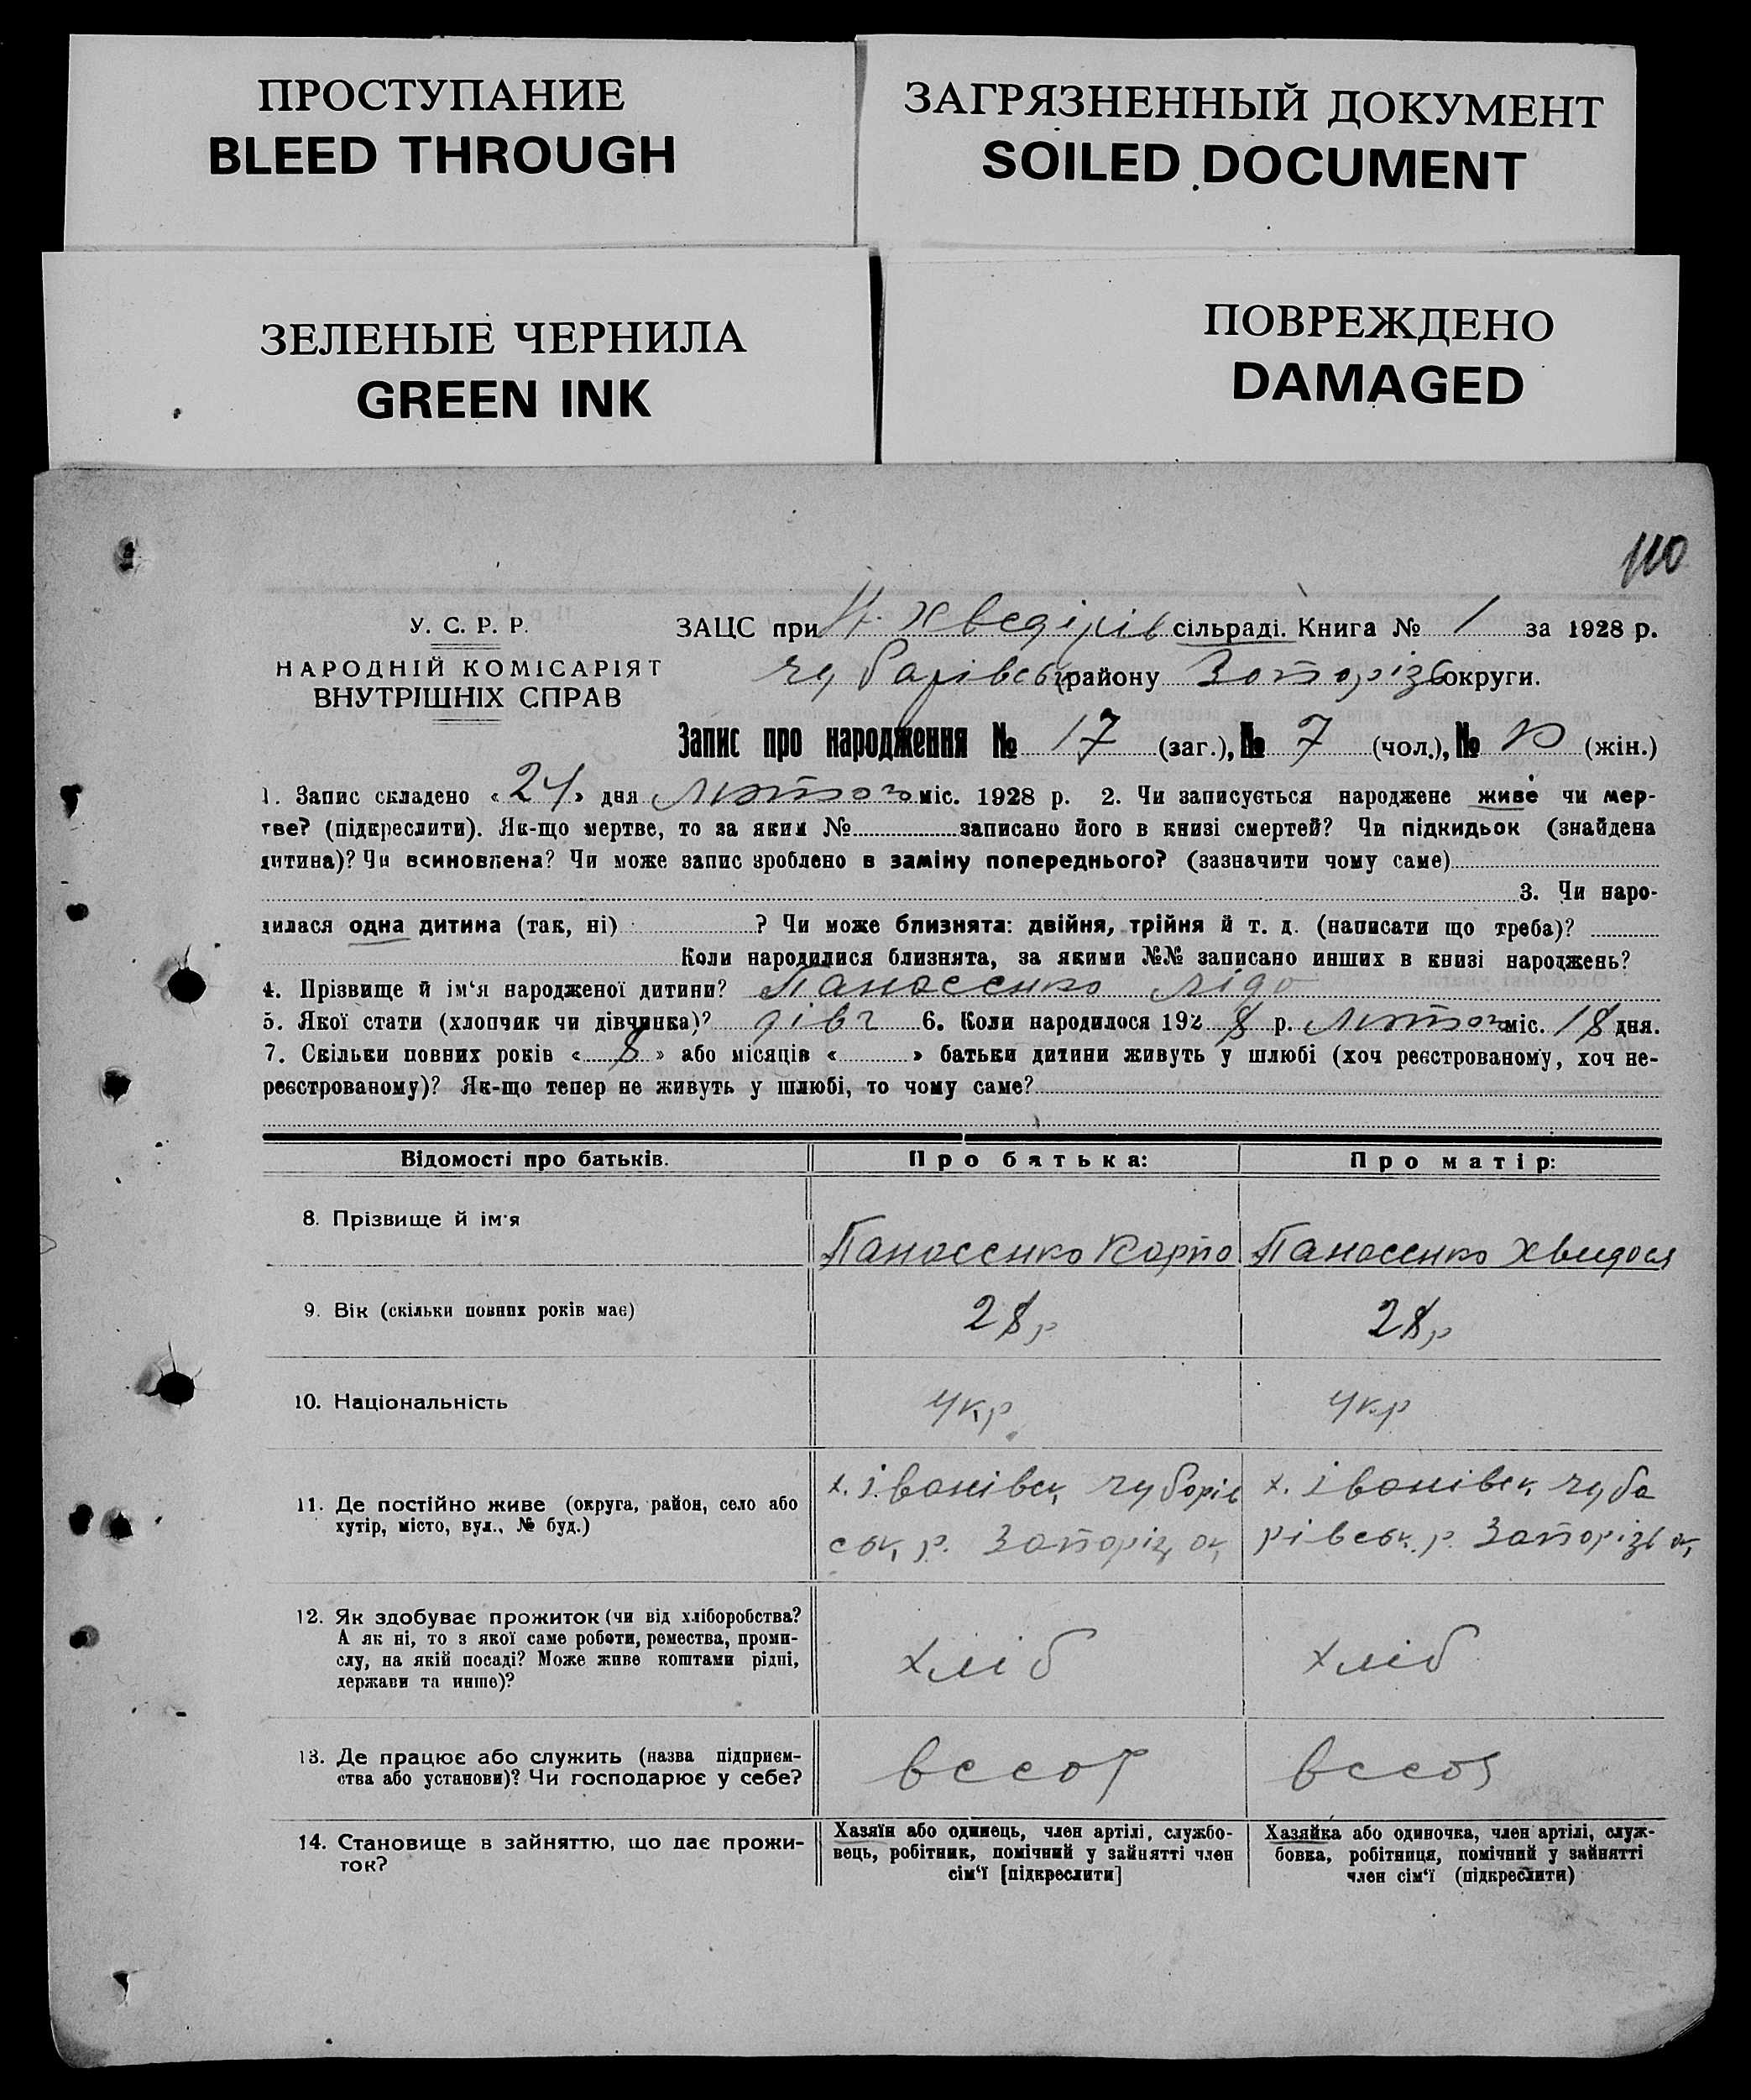 ПРОСТУПАНИЕ
BLEED THROUGH
ЗАГРЯЗНЕННЫЙ ДОКУМЕНТ
SOILED DOCUMENT
ЗЕЛЕНЫЕ ЧЕРНИЛА
GREEN INK
ПОВРЕЖДЕНО
DAMAGED
110
У. С. Р. Р.
НАРОДНІЙ КОМІСАРІЯТ
ВНУТРІШНІХ СПРАВ
ЗАЦС при Н. Хведірів сільраді. Книга № 1 за 1928 р.
Чубарівськ району Запорізь округи.
Запис про народження № 17 (заг.), № 7 (чол.), № (жін.)
1. Запис складено « 24 » дня лютого міс. 1928 р. 2. Чи записується народжене живе чи мер-
тве? (підкреслити). Як-що мертве, то за яким № записано його в книзі смертей? Чи підкидьок (знайдена
дитина)? Чи всиновлена? Чи може запис зроблено в заміну попереднього? (зазначити чому саме)
3. Чи наро-
дилася одна дитина (так, ні) ? Чи може близнята: двійня, трійня й т. д. (написати що треба)?
Коли народилися близнята, за якими №№ записано инших в книзі народжень?
4. Прізвище й ім‘я народженої дитини? Панасенко Ліда
5. Якої стати (хлопчик чи дівчинка)? дівч 6. Коли народилося 192 8 р. лютого міс. 18 дня.
7. Скільки повних років « 8 » або місяців « » батьки дитини живуть у шлюбі (хоч реєстрованому, хоч не-
реєстрованому)? Як-що тепер не живуть у шлюбі, то чому саме?
Відомості про батьків.
Про батька:
Про матір:
8. Прізвище й ім‘я
Панасенко Карпо
Панасенко Хвидося
9. Вік (скільки повних років має)
28 р
28 р
10. Національність
Укр
Укр
11. Де постійно живе (округа, район, село або
хутір, місто, вул., № буд.)
х. Іванівск Чубарів
ськ. р. Запоріз ок
х. Іванівск Чуба
рівськ. р. Запорізь ок
12. Як здобуває прожиток (чи від хліборобства?
А як ні, то з якої саме роботи, ремества, проми-
слу, на якій посаді? Може живе коштами рідні,
держави та инше)?
хліб
хліб
13. Де працює або служить (назва підприєм-
ства або установи)? Чи господарює у себе?
14. Становище в зайняттю, що дає прожи-
ток?
Хазяїн або одинець, член артілі, службо-
вець, робітник, помічний у зайнятті член
сім‘ї [підкреслити]
Хазяйка або одиночка, член артілі, служ-
бовка, робітниця, помічний у зайнятті
член сім‘ї (підкреслити)